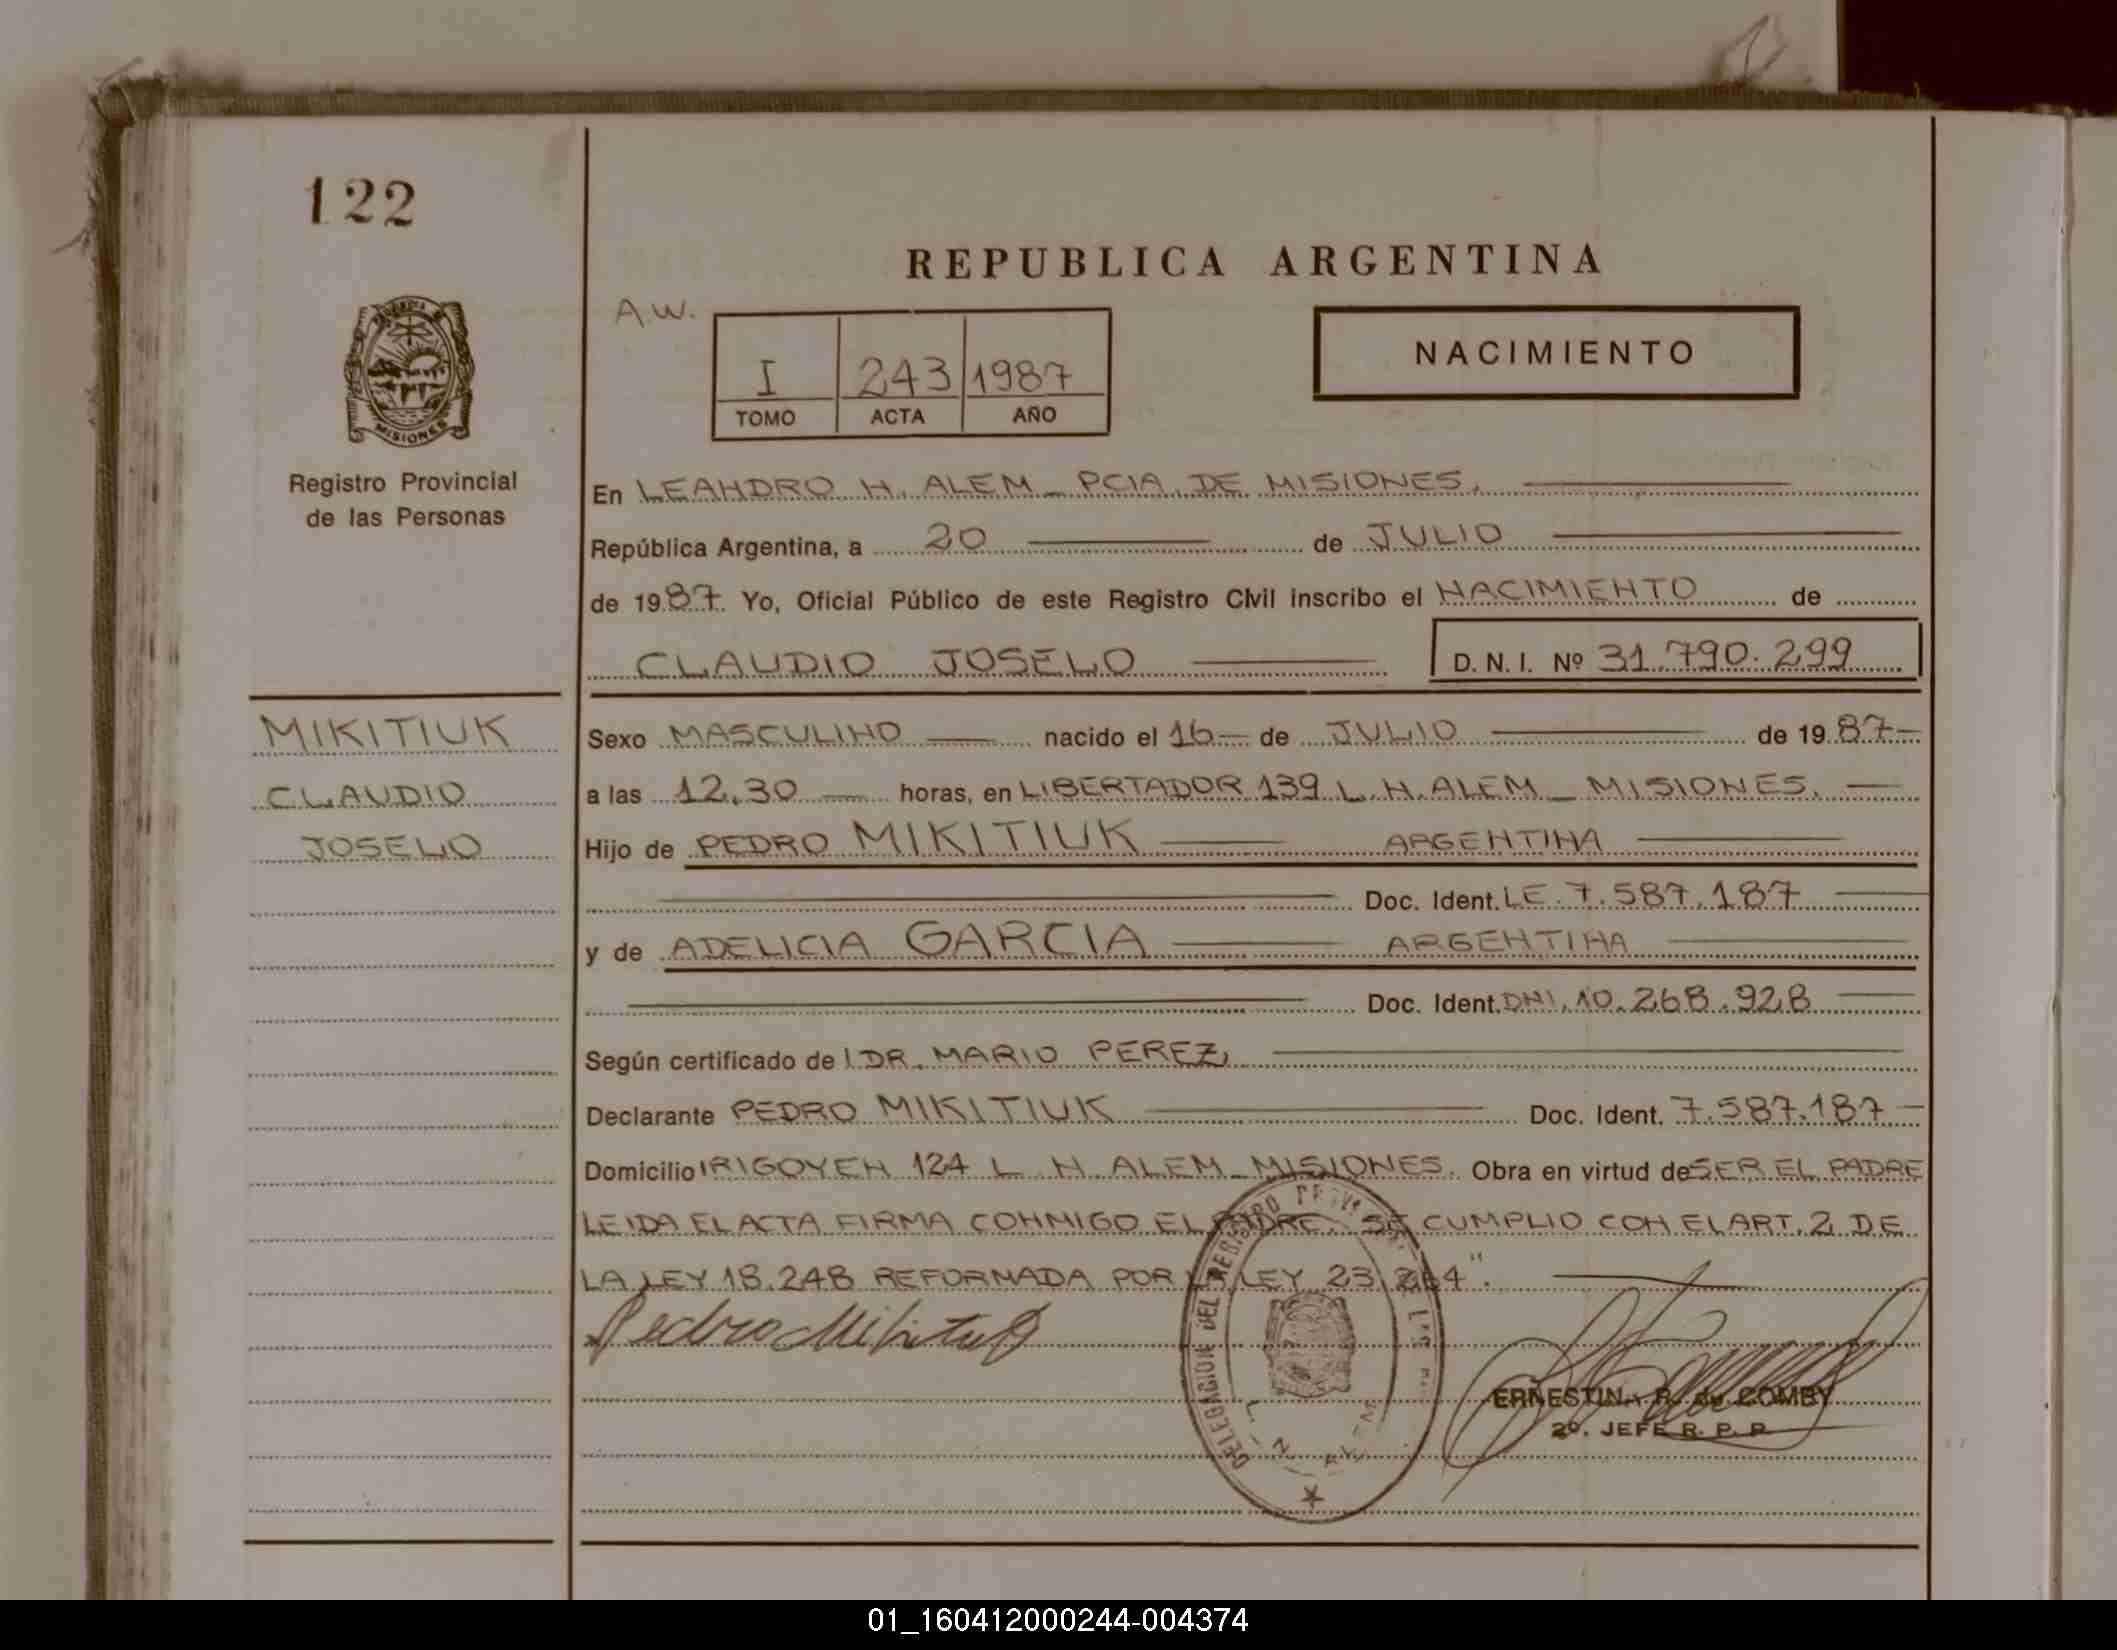 122
REPUBLICA ARGENTINA
A.W.
I 243 1987
TOMO ACTA AÑO
NACIMIENTO
MISIONES
Registro Provincial
de las Personas
En LEANDRO N. ALEM - PCIA. DE MISIONES.
República Argentina, a 20 de JULIO
de 1987. Yo, Oficial Público de este Registro Civil inscribo el NACIMIENTO de
CLAUDIO JOSELO D. N. I. Nº 31.790.299
MIKITIUK
CLAUDIO
JOSELO
Sexo MASCULINO nacido el 16 de JULIO de 1987
a las 12.30 horas, en LIBERTADOR 139 L. N. ALEM - MISIONES.
Hijo de PEDRO MIKITIUK ARGENTINA
Doc. Ident. LE. 7.587.187
y de ADELICIA GARCIA ARGENTINA
Doc. Ident. DNI. 10.268.928
Según certificado de l DR. MARIO PEREZ
Declarante PEDRO MIKITIUK Doc. Ident. 7.587.187
Domicilio IRIGOYEN 124 L. N. ALEM - MISIONES. Obra en virtud de SER EL PADRE
LEIDA EL ACTA FIRMA CONMIGO EL PADRE. SE CUMPLIO CON EL ART. 2 DE
LA LEY 18.248 REFORMADA POR LA LEY 23.264".
Pedro Mikitiuk
DELEGACION DEL REGISTRO
ERNESTINA R. de COMBY
2º. JEFE R. P. P.
01_160412000244-004374